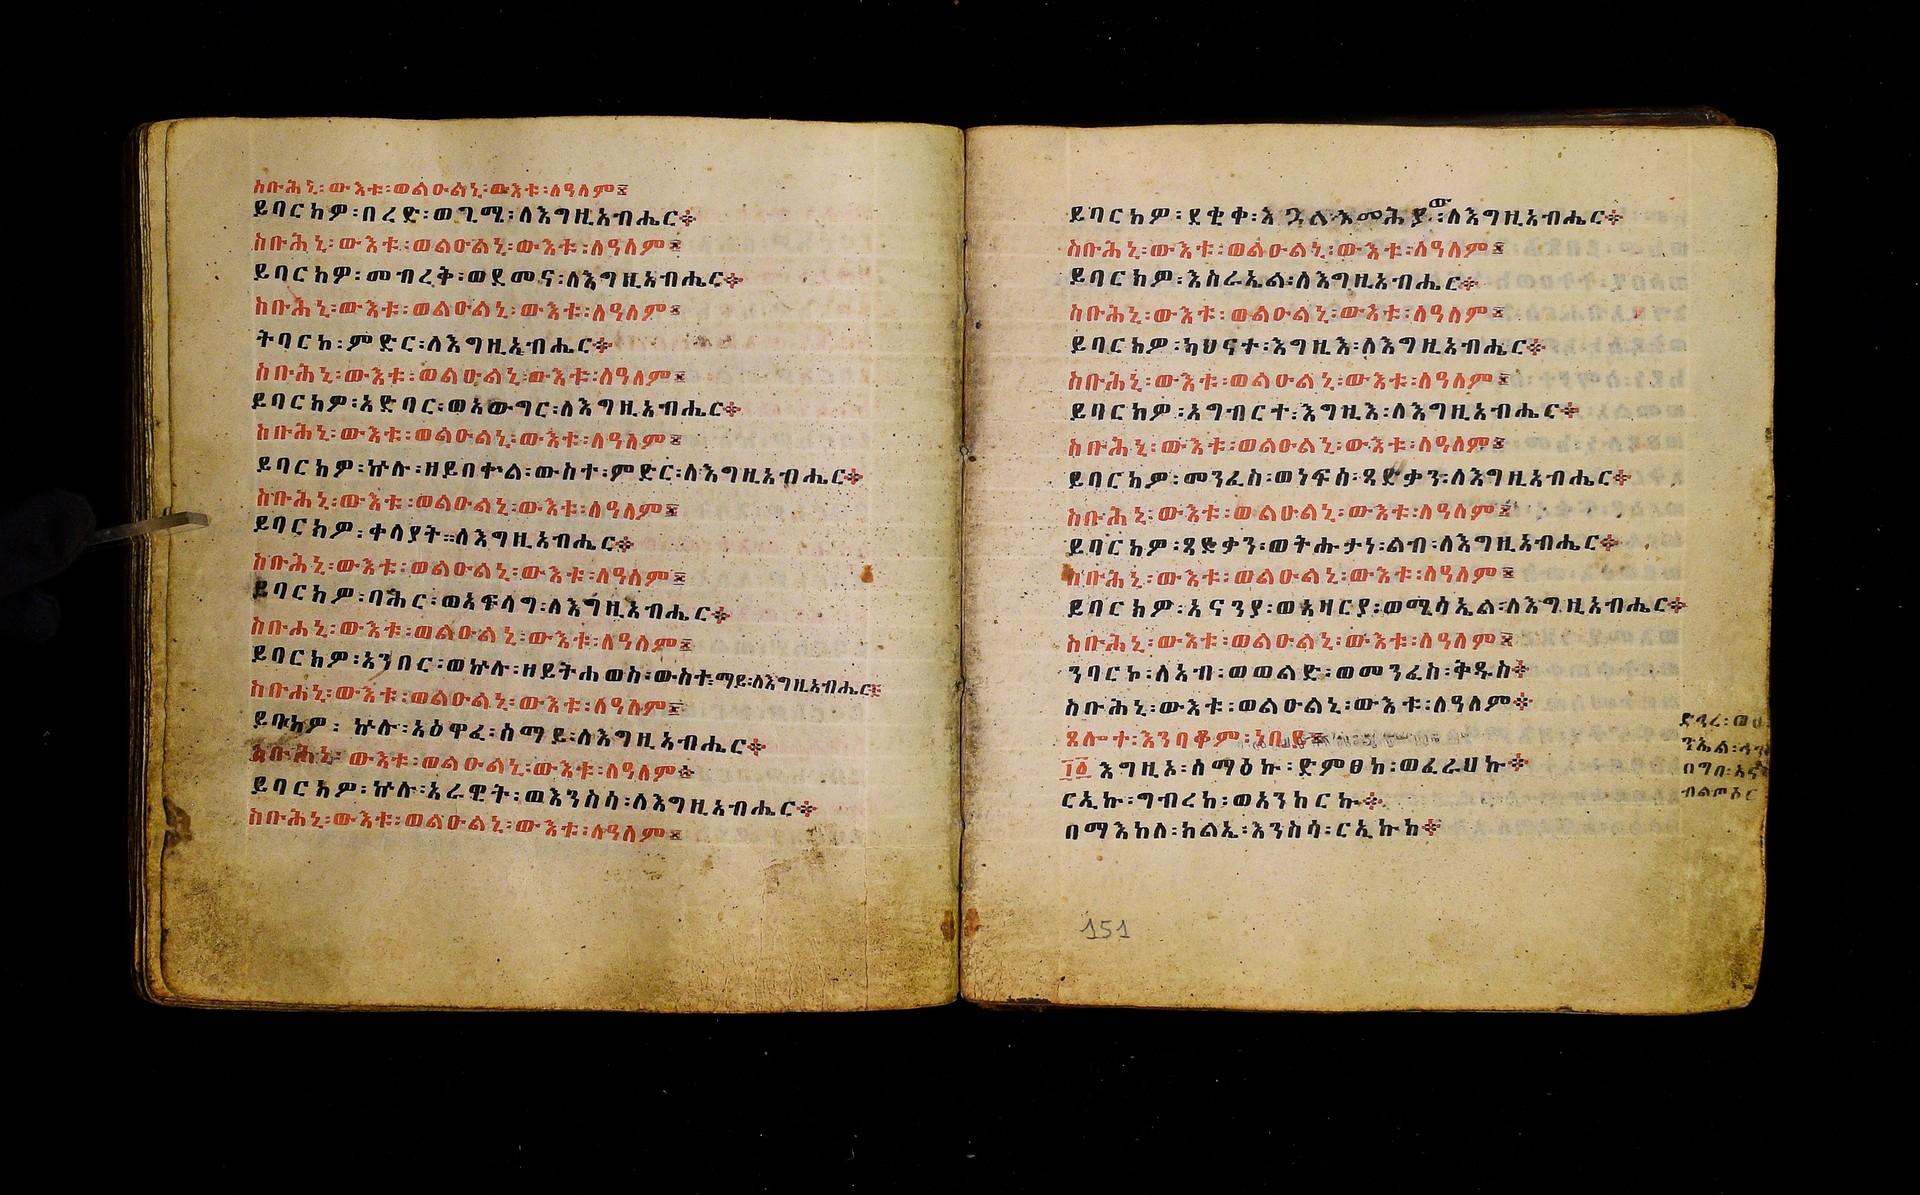 ስቡሕኒ፡ውእቱ፡ወልዑልኒ፡ውእቱ፡ለዓለም፨
ይባርክዎ፡በረድ፡ወጊሜ፡ለእግዚአብሔር፨
ስቡሕኒ፡ውእቱ፡ወልዑልኒ፡ውእቱ፡ለዓለም፨
ይባርክዎ፡መብረቅ፡ወደመና፡ለእግዚአብሔር፨
ስቡሕኒ፡ውእቱ፡ወልዑልኒ፡ውእቱ፡ለዓለም፨
ትባርክ፡ምድር፡ለእግዚአብሔር፨
ስቡሕኒ፡ውእቱ፡ወልዑልኒ፡ውእቱ፡ለዓለም፨
ይባርክዎ፡አድባር፡ወአውግር፡ለእግዚአብሔር፨
ስቡሕኒ፡ውእቱ፡ወልዑልኒ፡ውእቱ፡ለዓለም፨
ይባርክዎ፡ኵሉ፡ዘይበቍል፡ውስተ፡ምድር፡ለእግዚአብሔር፨
ስቡሕኒ፡ውእቱ፡ወልዑልኒ፡ውእቱ፡ለዓለም፨
ይባርክዎ፡ቀላያት።ለእግዚአብሔር፨
ስቡሕኒ፡ውእቱ፡ወልዑልኒ፡ውእቱ፡ለዓለም፨
ይባርክዎ፡ባሕር፡ወአፍላግ፡ለእግዚአብሔር፨
ስቡሐኒ፡ውእቱ፡ወልዑልኒ፡ውእቱ፡ለዓለም፨
ይባርክዎ፡አንበር፡ወኵሉ፡ዘይትሐወስ፡ውስተ፡ማይ፡ለእግዚአብሔር፨
ስቡሕኒ፡ውእቱ፡ወልዑልኒ፡ውእቱ፡ለዓለም፨
ይባክዎ፡ኵሉ፡አዕዋፈ፡ሰማይ፡ለእግዚአብሔር፨
ስቡሕኒ፡ውእቱ፡ወልዑልኒ፡ውእቱ፡ለዓለም፨
ይባርክዎ፡ኵሉ፡አራዊት፡ወእንስሳ፡ለእግዚአብሔር፨
ስቡሕኒ፡ውእቱ፡ወልዑልኒ፡ውእቱ፡ለዓለም፨
ይባርክዎ፡ደቂቀ፡እጓለ፡እመሕያው፡ለእግዚአብሔር፨
ስቡሕኒ፡ውእቱ፡ወልዑልኒ፡ውእቱ፡ለዓለም፨
ይባርክዎ፡እስራኤል፡ለእግዚአብሔር፨
ስቡሕኒ፡ውእቱ፡ወልዑልኒ፡ውእቱ፡ለዓለም፨
ይባርክዎ፡ካህናተ፡እግዚእ፡ለእግዚአብሔር፨
ስቡሕኒ፡ውእቱ፡ወልዑልኒ፡ውእቱ፡ለዓለም፨
ይባርክዎ፡አግብርተ፡እግዚእ፡ለእግዚአብሔር፨
ስቡሕኒ፡ውእቱ፡ወልዑልኒ፡ውእቱ፡ለዓለም፨
ይባርክዎ፡መንፈስ፡ወነፍሰ፡ጻድቃን፡ለእግዚአብሔር፨
ስቡሕኒ፡ውእቱ፡ወልዑልኒ፡ውእቱ፡ለዓለም፨
ይባርክዎ፡ጻድቃን፡ወትሑታነ፡ልብ፡ለእግዚአብሔር፨
ስቡሕኒ፡ውእቱ፡ወልዑልኒ፡ውእቱ፡ለዓለም፨
ይባርክዎ፡አናንያ፡ወአዛርያ፡ወሚሳኤል፡ለእግዚአብሔር፨
ስቡሕኒ፡ውእቱ፡ወልዑልኒ፡ውእቱ፡ለዓለም፨
ንባርኮ፡ለአብ፡ወወልድ፡ወመንፈስ፡ቅዱስ፨
ስቡሕኒ፡ውእቱ፡ወልዑልኒ፡ውእቱ፡ለዓለም፨
ጸሎተ፡እንባቆም፡ነቢይ፨
፲፩እግዚኦ፡ሰማዕኩ፡ድምፀከ፡ወፈራህኩ፨
ርኢኩ፡ግብረከ፡ወአንከርኩ፨
በማእከለ፡ክልኤ፡እንስሳ፡ርኢኩከ፨
151